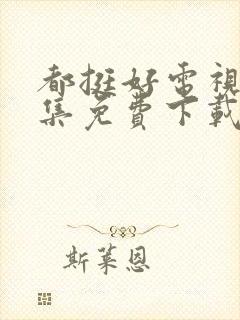 都挺好電視
集免費下載
斯萊恩